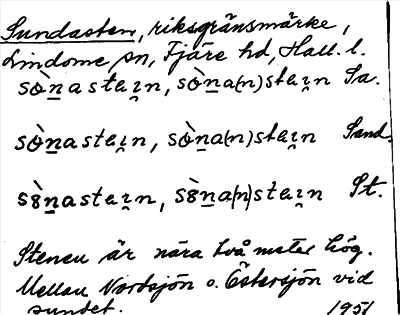 Sundasten, riksgränsmärke,
Lindome sn, Fjäre hd, Hall. l.
sò̀n̲asta̯in, sò̀n̲a(n)sta̯in Sa.
sò̀n̲asta̯in, sò̀n̲a(n)sta̯in Sand.
s8̀n̲asta̯in, s8̀n̲a(n)sta̯in St.
Stenen är nära två meter hög.
Mellan Nordsjön o. Östersjön vid
sundet. 1951